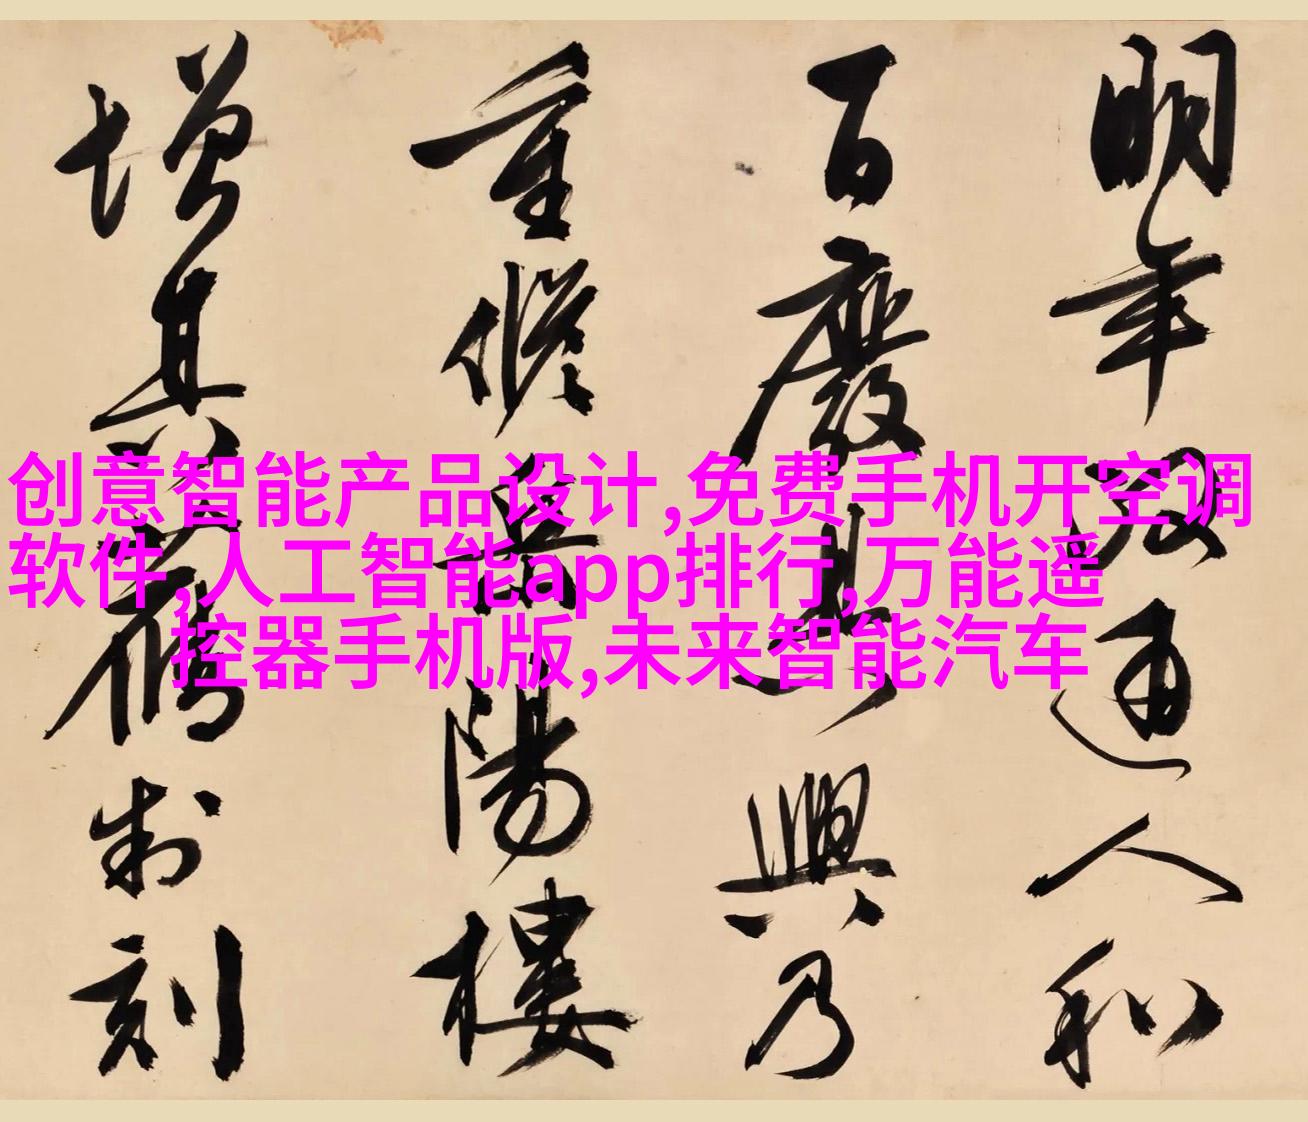 创意智能产品设计,免费手机开空调
软件,人工智能app排行,万能遥
控器手机版,未来智能汽车
明年政通人和
百廢具興乃
重脩岳陽樓
增其舊制刻